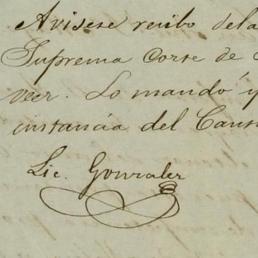 Avisese recibo dela
Suprema Corte de
veer. Lo mandó y
instancia del Canto
Lic. Gonzalez